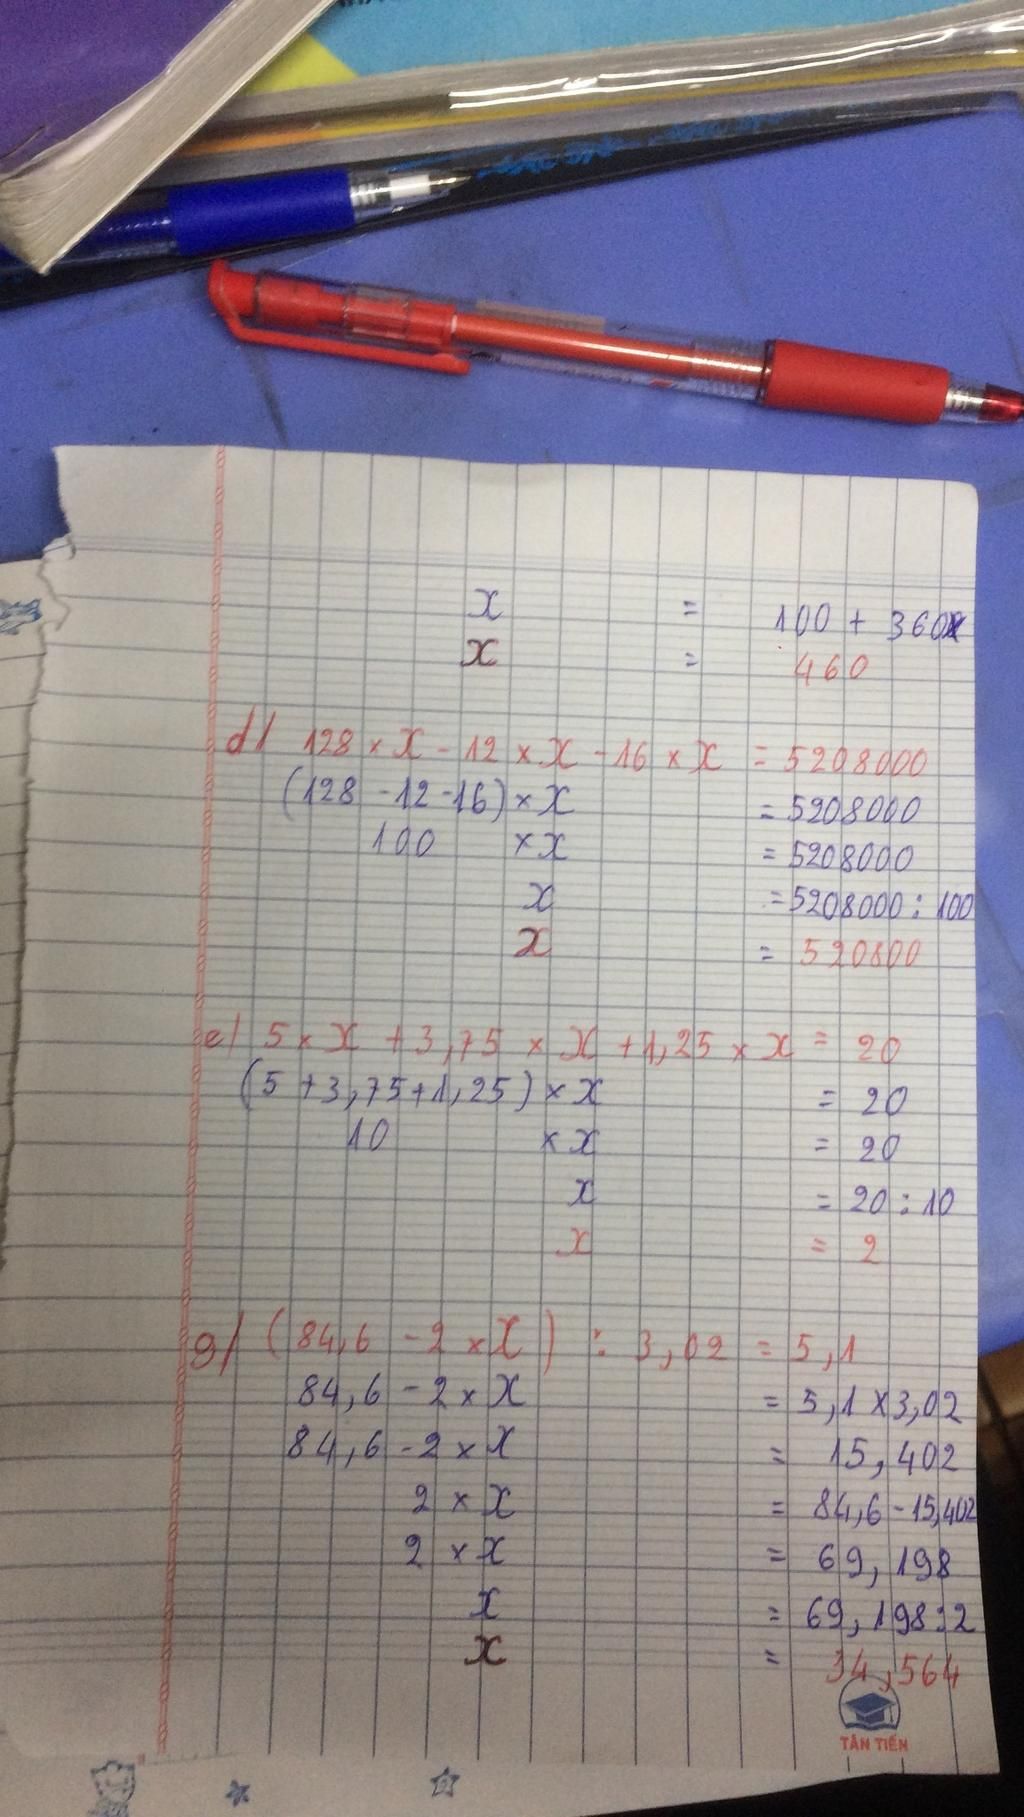 x = 100 + 360
x = 460
d/ 128 × x - 12 × x - 16 × x = 5208000
(128 - 12 - 16) × x = 5208000
100 × x = 5208000
x = 5208000 : 100
x = 520800
e/ 5 × x + 3,75 × x + 1,25 × x = 20
(5 + 3,75 + 1,25) × x = 20
10 × x = 20
x = 20 : 10
x = 2
g/ (84,6 - 2 × x) : 3,02 = 5,1
84,6 - 2 × x = 5,1 × 3,02
84,6 - 2 × x = 15,402
2 × x = 84,6 - 15,402
2 × x = 69,198
x = 69,198 : 2
x = 34,564
TÂN TIẾN